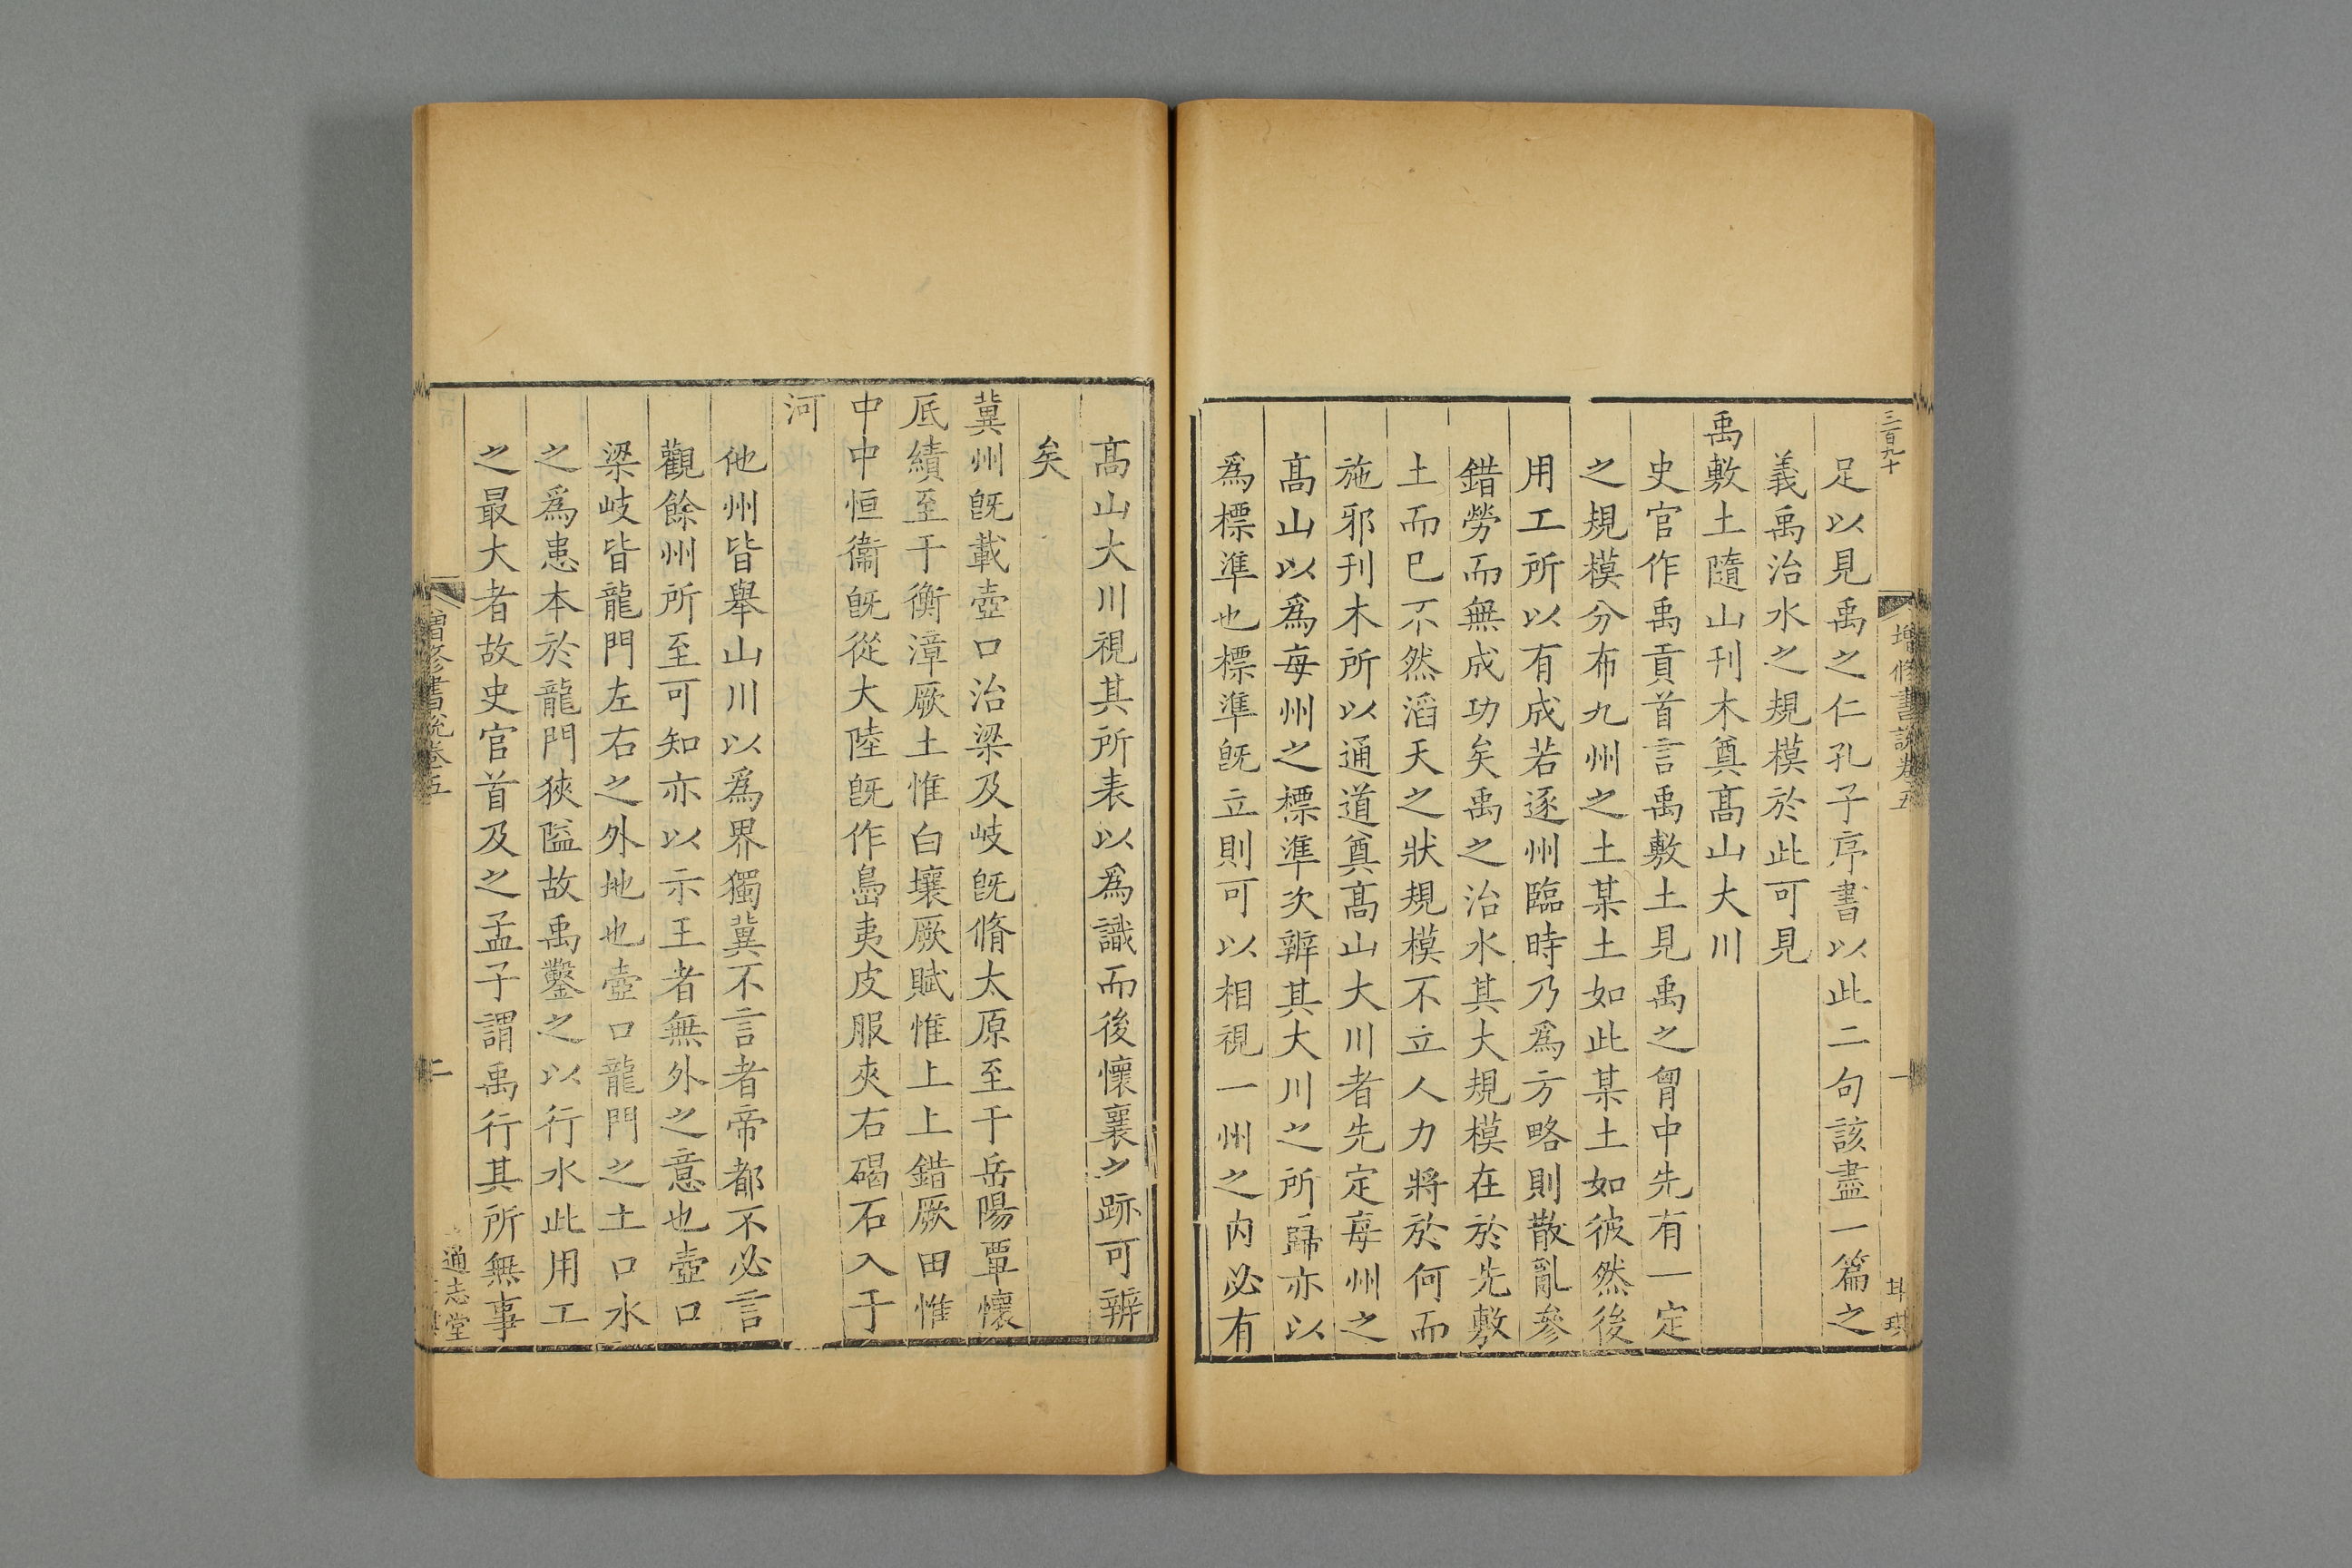 三百九十
增修書説卷五
一
足以見禹之仁孔子序書以此二句該盡一篇之
義禹治水之規模於此可見
禹敷土隨山刊木奠髙山大川
史官作禹貢首言禹敷土見禹之胷中先有一定
之規模分布九州之土某土如此某土如彼然後
用工所以有成若逐州臨時乃爲方略則散亂參
錯勞而無成功矣禹之治水其大規模在於先敷
土而已不然滔天之狀規模不立人力將於何而
施邪刊木所以通道奠髙山大川者先定每州之
髙山以爲每州之標準次辨其大川之所歸亦以
爲標準也標準旣立則可以相視一州之内必有
髙山大川視其所表以爲識而後懷襄之跡可辨
矣
冀州旣載壺口治梁及岐旣脩太原至于岳陽覃懷
厎績至于衡漳厥土惟白壤厥賦惟上上錯厥田惟
中中恒衞旣從大陸旣作島夷皮服夾右碣石入于
河
他州皆舉山川以爲界獨冀不言者帝都不必言
觀餘州所至可知亦以示王者無外之意也壺口
梁岐皆龍門左右之外地也壺口龍門之土口水
之爲患本於龍門狹隘故禹鑿之以行水此用工
之最大者故史官首及之孟子謂禹行其所無事
增修書説卷五
二
通志堂